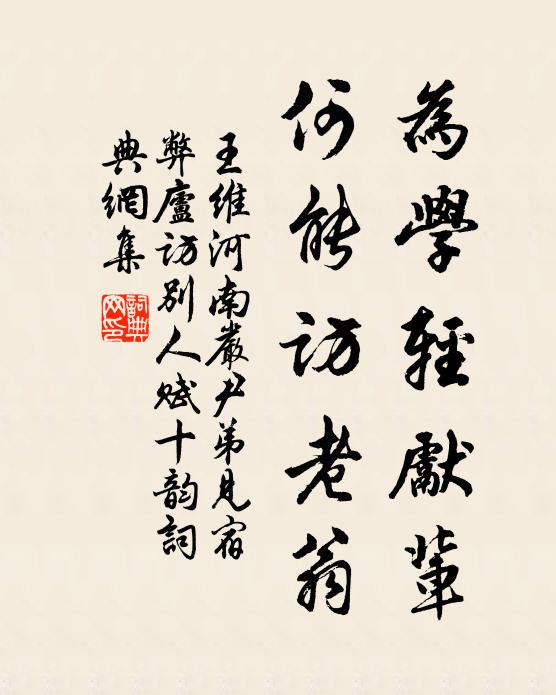 為學輕獻輩
何能訪老翁
王維河南嚴尹弟見宿
弊廬訪別人賦十韵詞
典網集
詞典
网印